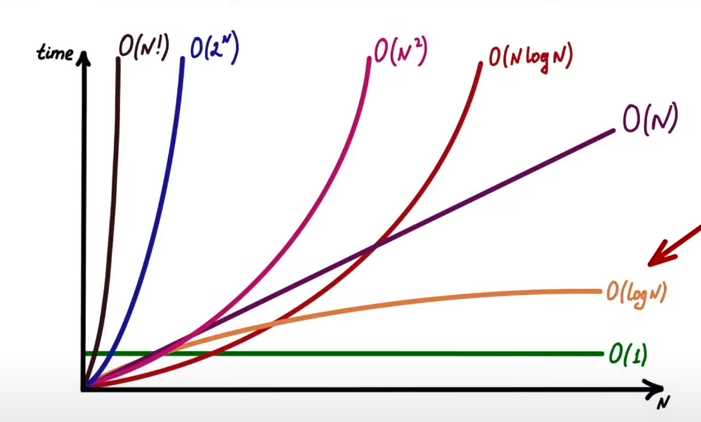 time
O(N!)
O(2^N)
O(N²)
O(N log N)
O(N)
O(log N)
O(1)
N